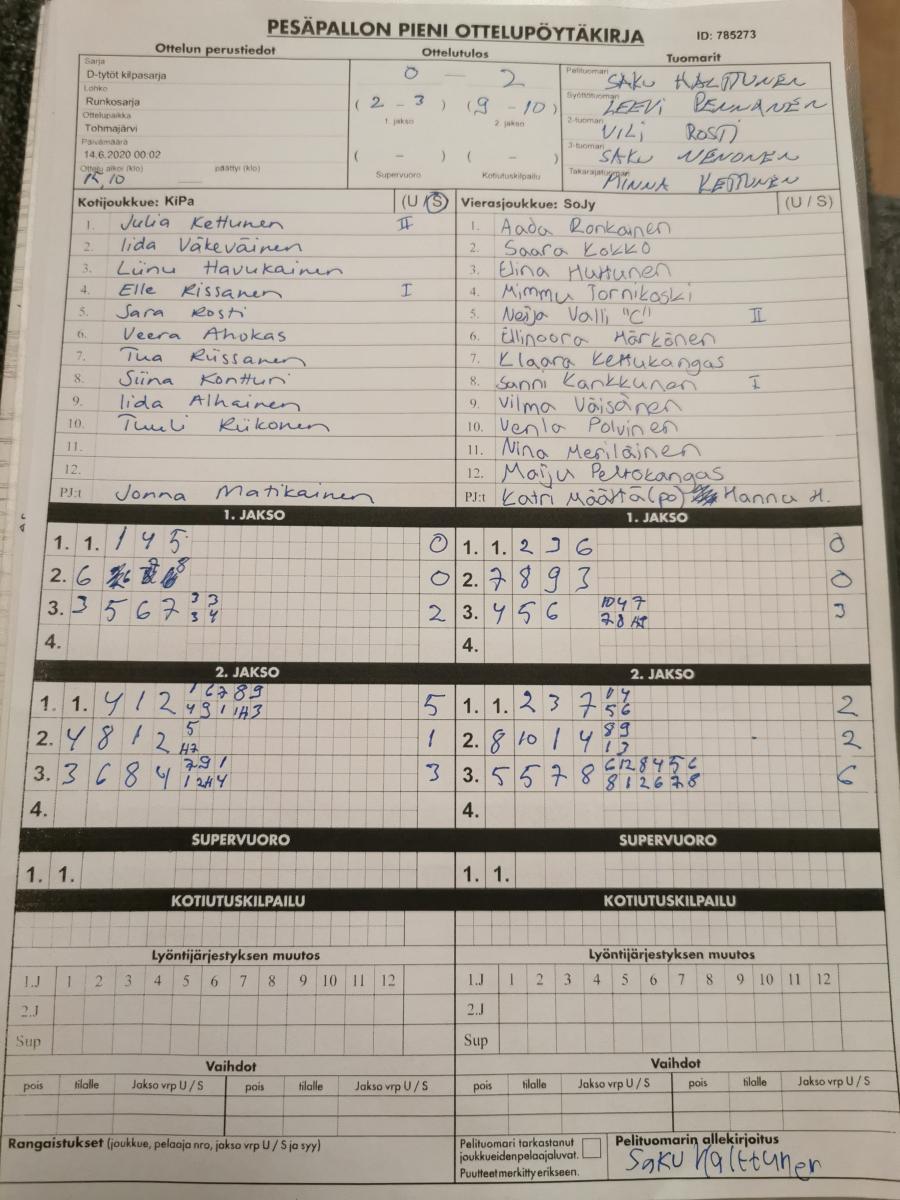 PESÄPALLON PIENI OTTELUPÖYTÄKIRJA ID: 785273
Ottelun perustiedot Ottelutulos Tuomarit
Sarja
D-tytöt kilpasarja
Lohko
Runkosarja
Ottelupaikka
Tohmajärvi
Päivämäärä
14.6.2020 00:02
Ottelu alkoi (klo) päättyi (klo)
15.10
0 — 2
( 2 - 3 ) ( 9 - 10 )
1. jakso 2. jakso
( - ) ( - )
Supervuoro Kotiutuskilpailu
Pelituomari SAKU HALTTUNEN
Syöttötuomari LEEVI PENNANEN
2-tuomari VILI ROSTI
3-tuomari SAKU NENONEN
Takarajatuomari MINNA KETTUNEN
Kotijoukkue: KiPa (U / S)
1. Julia Kettunen II
2. Iida Väkeväinen
3. Liinu Havukainen
4. Elle Rissanen I
5. Sara Rosti
6. Veera Ahokas
7. Tua Riissanen
8. Siina Kontturi
9. Iida Alhainen
10. Tuuli Riikonen
11.
12.
PJ:t Jonna Matikainen
Vierasjoukkue: SoJy (U / S)
1. Aada Ronkainen
2. Saara Kokko
3. Elina Huttunen
4. Mimmu Tornikoski
5. Neija Valli "C" II
6. Ellinoora Härkönen
7. Klaara Kettukangas
8. Sanni Kankkunen I
9. Vilma Väisänen
10. Venla Polvinen
11. Nina Meriläinen
12. Maiju Peltokangas
PJ:t Katri Määttä (po) Hannu H.
1. JAKSO
1. 1. 1 4 5 0
2. 6 8 0
3. 3 5 6 7 3 3 2
3 4
4.
2. JAKSO
1. 1. 4 1 2 1 6 7 8 9 5
4 9 1 1H3
2. 4 8 1 2 5 1
H7
3. 3 6 8 4 7 9 1 3
1 2H4
4.
1. JAKSO
1. 1. 2 3 6 0
2. 7 8 9 3 0
3. 4 5 6 10 4 7 3
7 8 H2
4.
2. JAKSO
1. 1. 2 3 7 1 4 2
5 6
2. 8 10 1 4 8 9 2
1 3
3. 5 5 7 8 6 12 8 4 5 6 6
8 1 2 6 7 8
4.
SUPERVUORO
1. 1.
KOTIUTUSKILPAILU
Lyöntijärjestyksen muutos
1.J 1 2 3 4 5 6 7 8 9 10 11 12
2.J
Sup
Vaihdot
pois tilalle Jakso vrp U / S pois tilalle Jakso vrp U / S
SUPERVUORO
1. 1.
KOTIUTUSKILPAILU
Lyöntijärjestyksen muutos
1.J 1 2 3 4 5 6 7 8 9 10 11 12
2.J
Sup
Vaihdot
pois tilalle Jakso vrp U / S pois tilalle Jakso vrp U / S
Rangaistukset (joukkue, pelaaja nro, jakso vrp U / S ja syy)
Pelituomari tarkastanut
joukkueidenpelaajaluvat.
Puutteet merkitty erikseen.
Pelituomarin allekirjoitus
Saku Halttunen